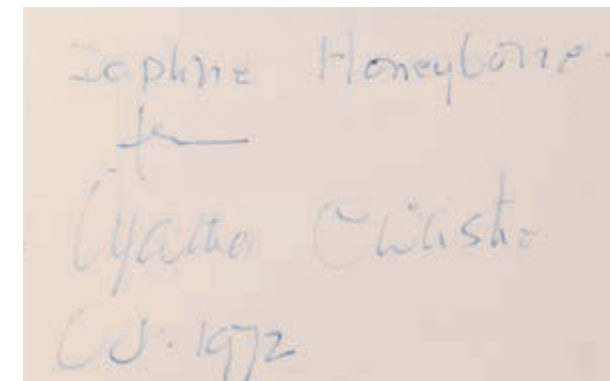 Daphne Honeybone
from
Agatha Christie
1972